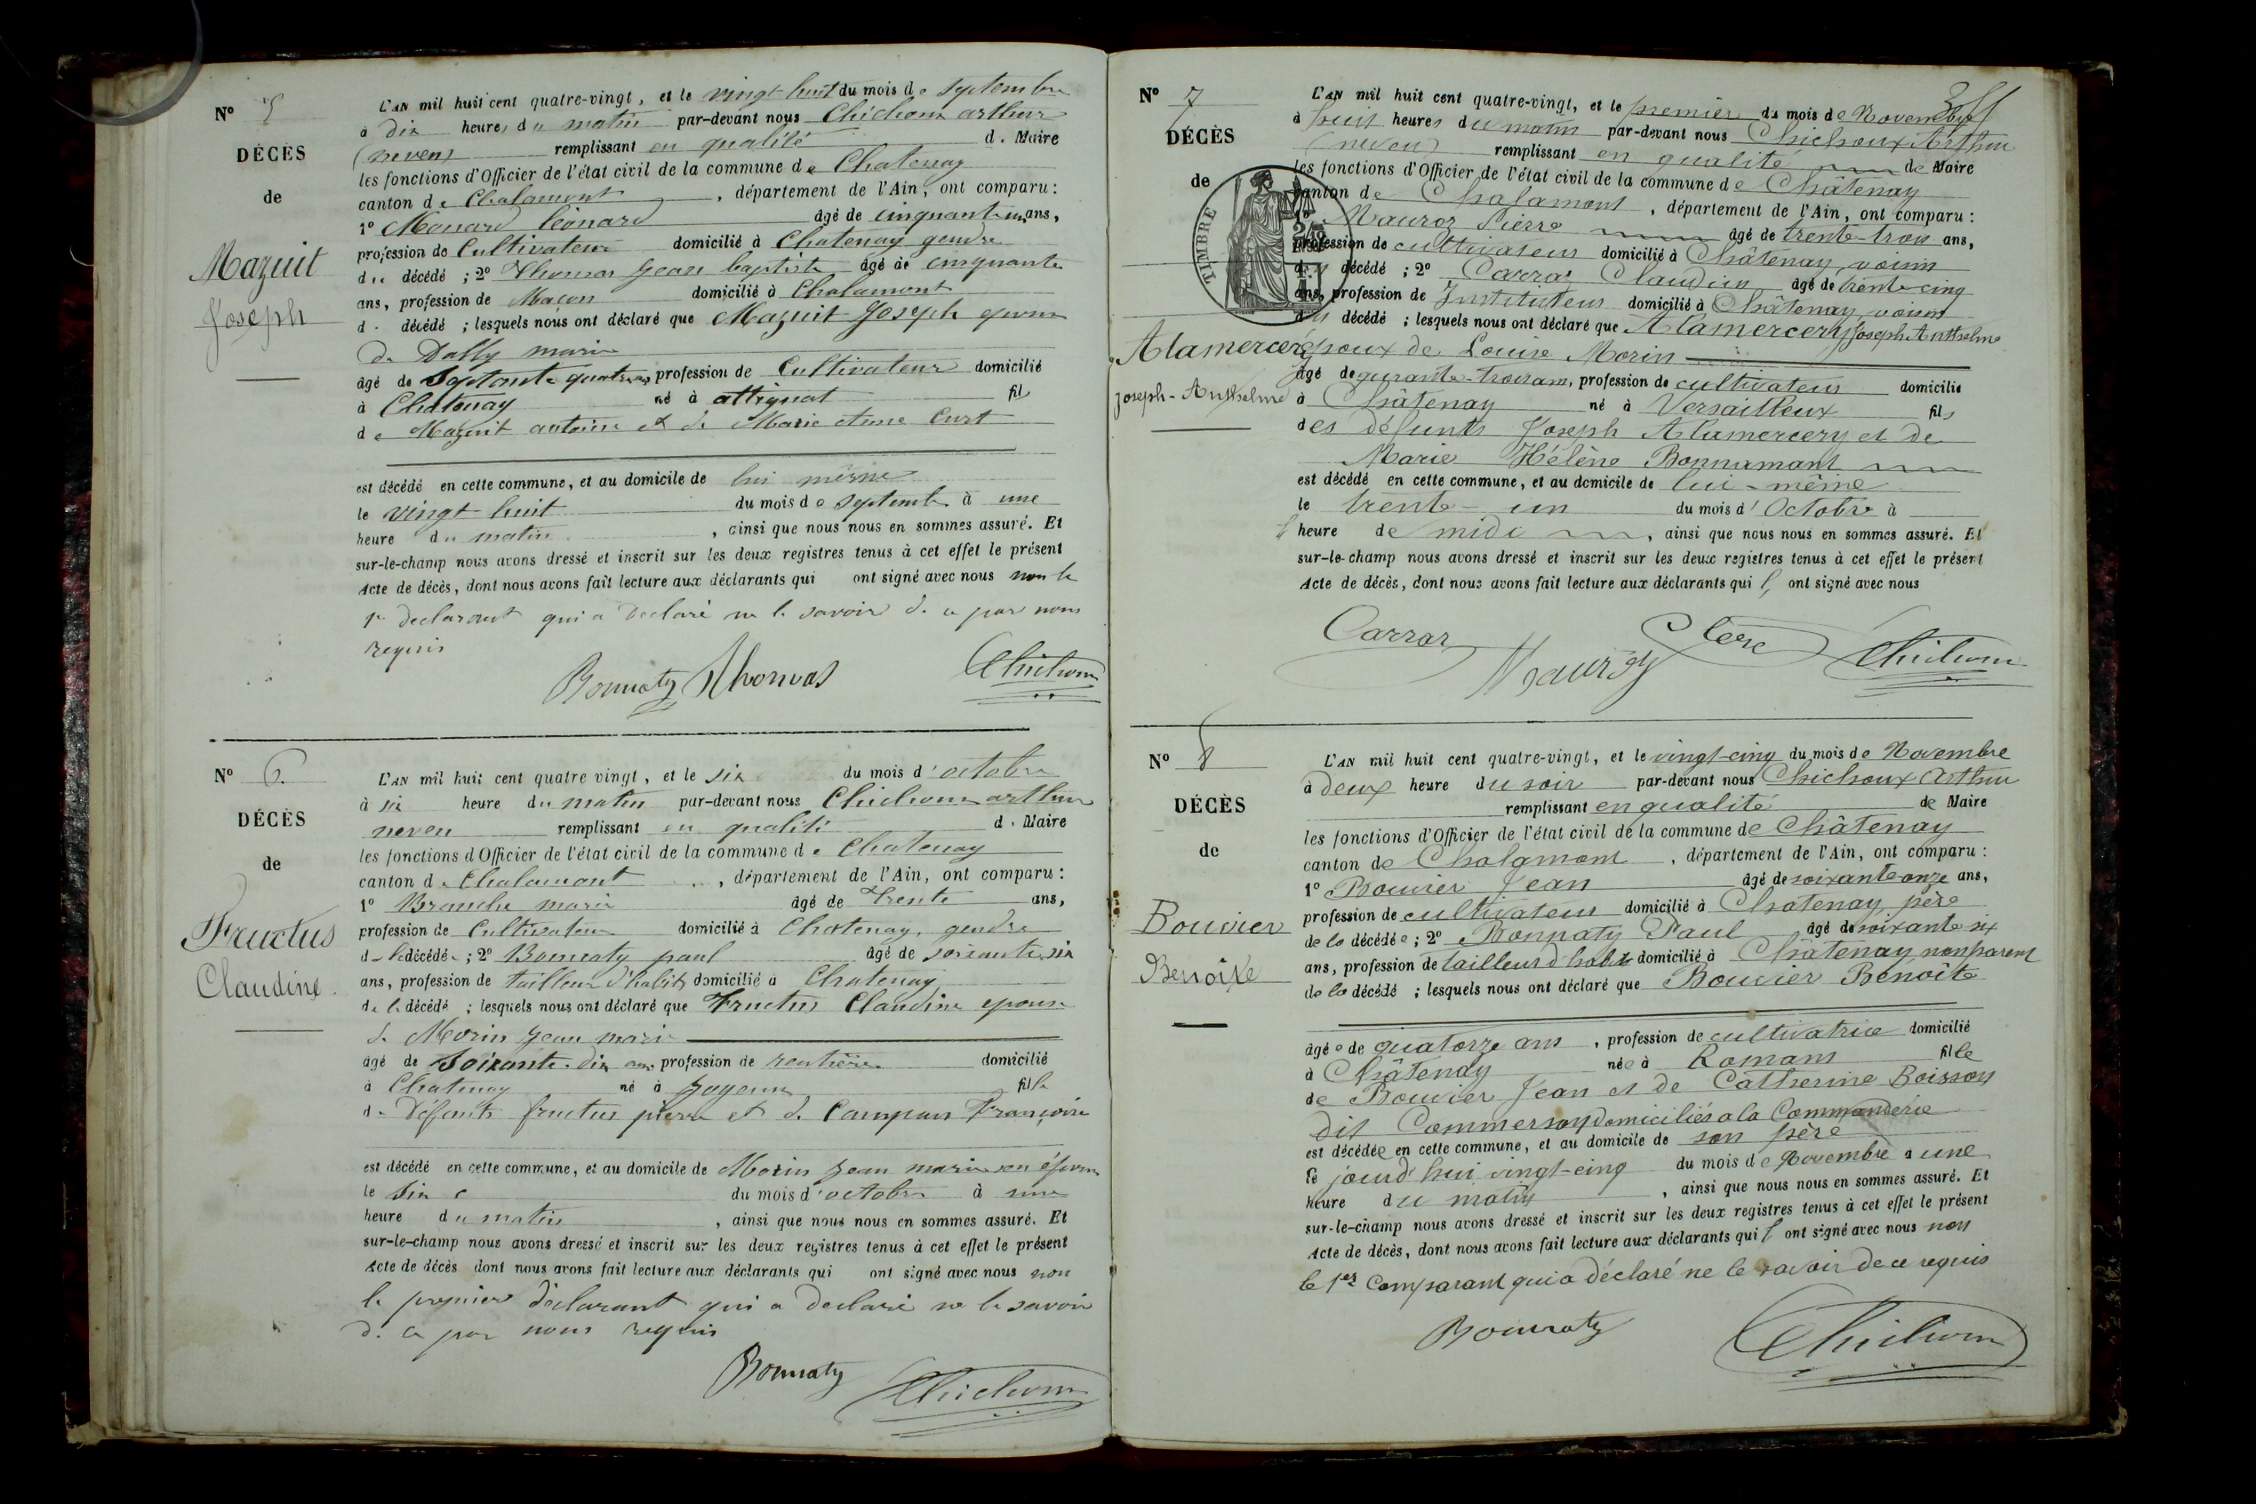 N° 5
DÉCÈS
de
Mazuit
Joseph
L'AN mil huit cent quatre-vingt, et le vingt huit du mois de septembre
à dix heures du matin par-devant nous Chichoux arthur
(neveu) remplissant en qualité d. Maire
les fonctions d'Officier de l'état civil de la commune de Chatenay
canton de Chalamont, département de l'Ain, ont comparu:
1° Monard léonard âgé de cinquante un ans,
profession de Cultivateur domicilié à Chatenay gendre
du décédé; 2° Thomas Jean baptiste âgé de cinquante
ans, profession de Maçon domicilié à Chalamont
d. décédé; lesquels nous ont déclaré que Mazuit Joseph epoux
De Dally marie
âgé de Septante quatre ans, profession de Cultivateur domicilié
à Chatenay né à attignat fils
de Mazuit antoine et de Marie Curt
est décédé en cette commune, et au domicile de lui même
le vingt huit du mois de septemb à une
heure du matin, ainsi que nous nous en sommes assuré. Et
sur-le-champ nous avons dressé et inscrit sur les deux registres tenus à cet effet le présent
Acte de décès, dont nous avons fait lecture aux déclarants qui ont signé avec nous non le
1er declarant qui a declaré ne le savoir de ce par nous
requis
Bonnaty Thomas Chichoux
N° 6.
DÉCÈS
de
Fructus
Claudine.
L'AN mil huit cent quatre vingt, et le six du mois d'octobre
à six heure du matin par-devant nous Chichoux arthur
neveu remplissant en qualité d. Maire
les fonctions d'Officier de l'état civil de la commune de Chatenay
canton de Chalamont, département de l'Ain, ont comparu:
1° Branche marie âgé de Trente ans,
profession de Cultivateur domicilié à Chatenay, gendre
de la décédée; 2° Bonnaty paul âgé de soixante six
ans, profession de tailleur d'habits domicilié à Chatenay
de la décédé; lesquels nous ont déclaré que Fructus Claudine epouse
de Morin Jean marie
âgé de Soixante-dix ans profession de rentière domicilié
à Chatenay né à Joyeux fille
de Défunts fructus pierre et de Françoise
est décédé en cette commune, et au domicile de Morin Jean marie son époux
le Six du mois d'octobre à une
heure du matin, ainsi que nous nous en sommes assuré. Et
sur-le-champ nous avons dressé et inscrit sur les deux registres tenus à cet effet le présent
Acte de décès dont nous avons fait lecture aux déclarants qui ont signé avec nous non
le premier déclarant qui a declaré ne le savoir
de ce par nous requis
Bonnaty Chichoux
N° 7
DÉCÈS
de
TIMBRE
Alamercery
Joseph-Anthelme
L'AN mil huit cent quatre-vingt, et le premier du mois de Novembre
à huit heures du matin par-devant nous Chichoux Arthur
(neveu) remplissant en qualité de Maire
les fonctions d'Officier de l'état civil de la commune de Châtenay
canton de Chalamont, département de l'Ain, ont comparu:
1° Mauroz Pierre âgé de trente-trois ans,
profession de cultivateur domicilié à Châtenay, voisin
du décédé; 2° Carraz Claudius âgé de trente-cinq
ans, profession de Instituteur domicilié à Châtenay, voisin
du décédé; lesquels nous ont déclaré que Alamercery Joseph Anthelme
époux de Louise Morin
âgé de quarante-trois ans, profession de cultivateur domicilié
à Châtenay né à Versailleux fils
des défunts Joseph Alamercery et de
Marie Hélène Bonnamant
est décédé en cette commune, et au domicile de lui-même
le trente-un du mois d'Octobre à
heure de midi, ainsi que nous nous en sommes assuré. Et
sur-le-champ nous avons dressé et inscrit sur les deux registres tenus à cet effet le présent
Acte de décès, dont nous avons fait lecture aux déclarants qui ont signé avec nous
Carraz Mauroz Chichoux
N° 8
DÉCÈS
de
Bouvier
Benoîte
L'AN mil huit cent quatre-vingt, et le vingt-cinq du mois de Novembre
à deux heure du soir par-devant nous Chichoux Arthur
remplissant en qualité de Maire
les fonctions d'Officier de l'état civil de la commune de Châtenay
canton de Chalamont, département de l'Ain, ont comparu:
1° Bouvier Jean âgé de soixante onze ans,
profession de cultivateur domicilié à Chatenay, père
de la décédée; 2° Bonnaty Paul âgé de soixante six
ans, profession de tailleur d'habits domicilié à Châtenay, non parent
de la décédé; lesquels nous ont déclaré que Bouvier Benoîte
âgée de quatorze ans, profession de cultivatrice domicilié
à Châtenay née à Romans fille
de Bouvier Jean et de Catherine Boisson
dit Commerson domiciliés a la Commanderie
est décédée en cette commune, et au domicile de son père
le jourd'hui vingt-cinq du mois de Novembre à une
heure du matin, ainsi que nous nous en sommes assuré. Et
sur-le-champ nous avons dressé et inscrit sur les deux registres tenus à cet effet le présent
Acte de décès, dont nous avons fait lecture aux déclarants qui ont signé avec nous non
le 1er Comparant qui a déclaré ne le savoir de ce requis
Bonnaty Chichoux